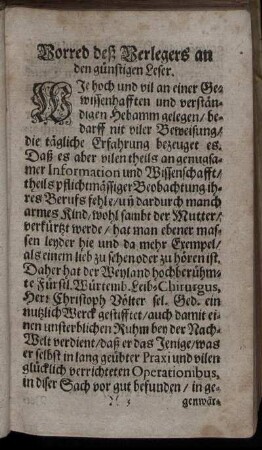 Vorred deß Verlegers an
den günstigen Leser.
WJe hoch und vil an einer Ge-
wissenhafften und verstän-
digen Hebamm gelegen / be-
darff nit viler Beweisung /
die tägliche Erfahrung bezeuget es.
Daß es aber vilen theils an genugsa-
mer Information und Wissenschafft /
theils pflichtmässiger Beobachtung ih-
res Berufs fehle / uñ dardurch manch
armes Kind / wohl sambt der Mutter /
verkürtzt werde / hat man ebener mas-
sen leyder hie und da mehr Exempel /
als einem lieb zu sehen oder zu hören ist.
Daher hat der Weyland hochberühm-
te Fürstl. Würtemb. Leib-Chirurgus,
Herr Christoph Völter sel. Ged. ein
nutzlich Werck gestifftet / auch damit ei-
nen unsterblichen Ruhm bey der Nach-
Welt verdient / daß er das Jenige / was
er selbst in lang geübter Praxi und vilen
glücklich verrichteten Operationibus,
in diser Sach vor gut befunden / in ge-
genwär-